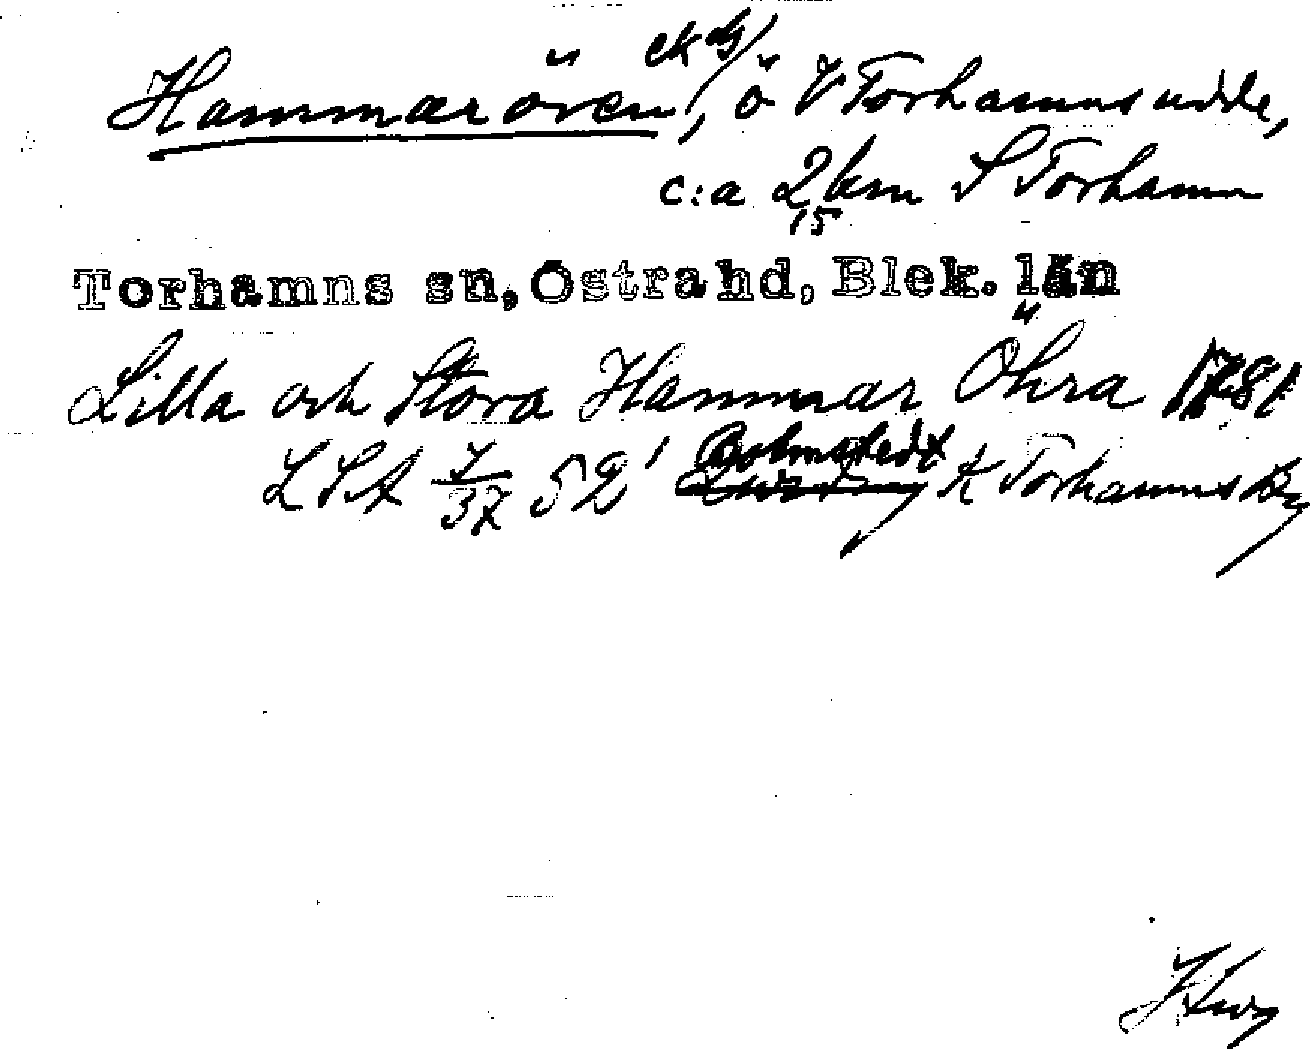 ek bl
Hammarören, ö V Torhamnsudde,
c:a 2 km S Torhamn
15
Torhamns sn, Östra hd, Blek. län
Lilla och Stora Hammar Öhra 1781
LSA 7/37 52' Bolmstedt K Torhamnsby